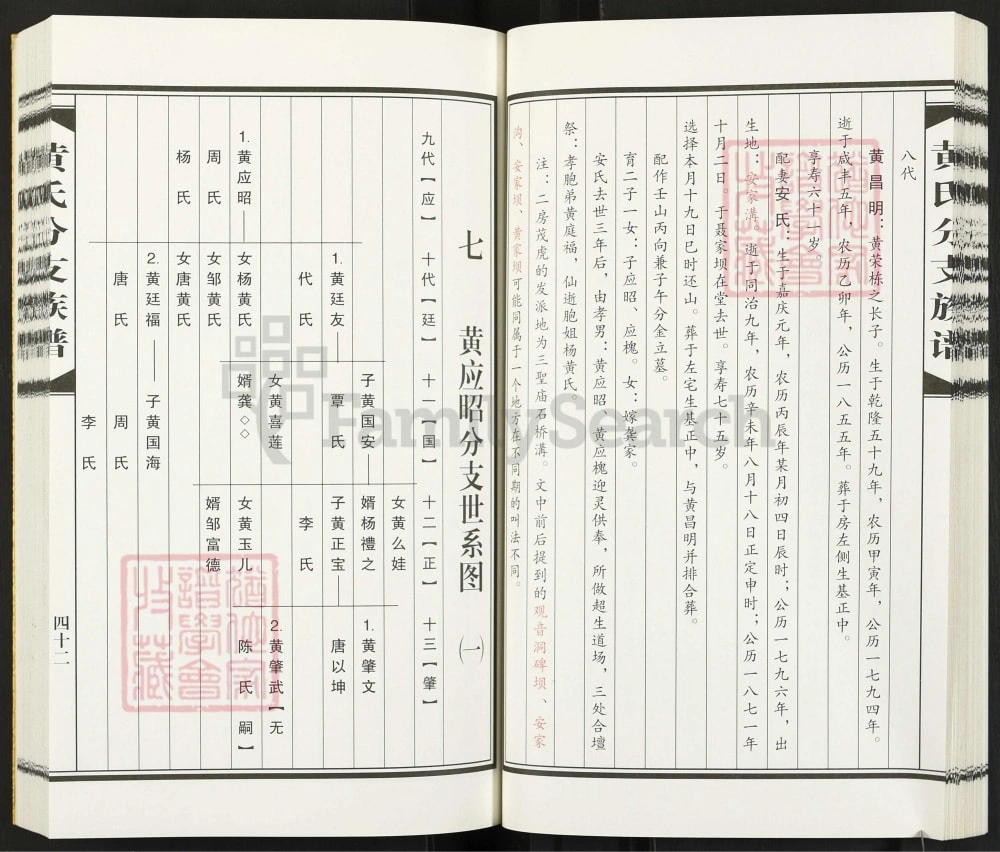 黄氏分支族谱
八代
黄昌明：黄荣栋之长子。生于乾隆五十九年，农历甲寅年，公历一七九四年。
逝于咸丰五年，农历乙卯年，公历一八五五年。葬于房左侧生基正中。
享寿六十一岁。
配妻安氏：生于嘉庆元年，农历丙辰年某月初四日辰时；公历一七九六年，出
生地：安家溝。逝于同治九年，农历辛未年八月十八日正定申时；公历一八七一年
十月二日。于聂家坝在堂去世。享寿七十五岁。
选择本月十九日巳时还山。葬于左宅生基正中，与黄昌明并排合葬。
配作壬山丙向兼子午分金立墓。
育二子一女：子应昭、应槐。女：嫁龚家。
安氏去世三年后，由孝男：黄应昭、黄应槐迎灵供奉，所做超生道场，三处合壇
祭：孝胞弟黄庭福，仙逝胞姐杨黄氏。
注：二房茂虎的发派地为三聖庙石桥溝。文中前后提到的观音洞碑坝、安家
沟、安家坝、黄家坝可能同属于一个地方在不同期的叫法不同。
七　黄应昭分支世系图（一）
九代【应】　十代【廷】　十一【国】　十二【正】　十三【肇】
女黄么娃
子黄国安　婿杨禮之　1.黄肇文
1.黄廷友　覃氏　子黄正宝　唐以坤
代氏　李氏
女黄喜莲　2.黄肇武【无
1.黄应昭　女杨黄氏　婿龚◇◇　女黄玉儿　陈氏　嗣】
周氏　女邹黄氏　婿邹富德
杨氏　女唐黄氏
2.黄廷福　子黄国海
唐氏　周氏
李氏
黄氏分支族谱
四十二
FamilySearch